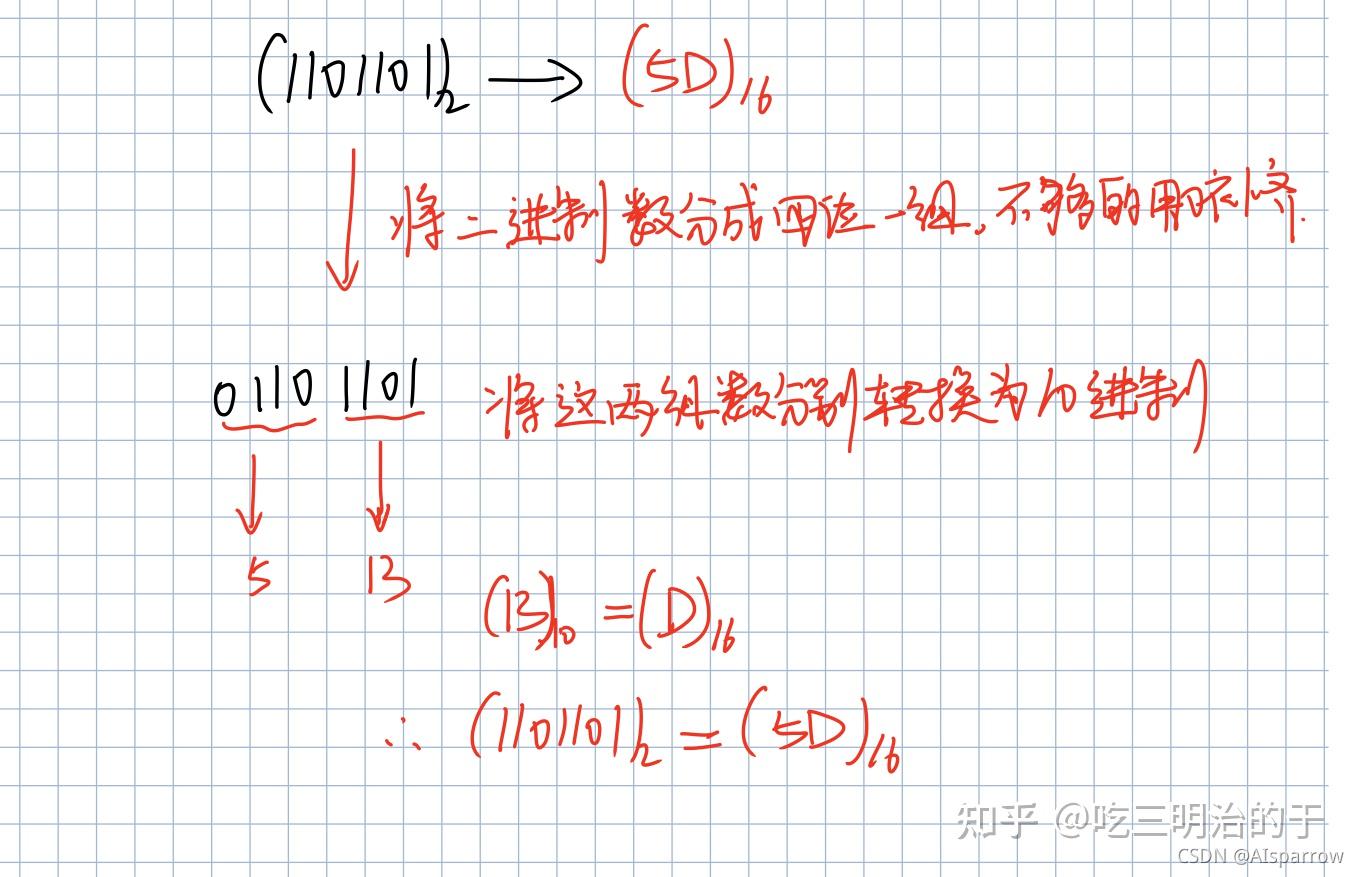 (1101101)₂ → (5D)₁₆
将二进制数分成四位一组,不够的用0补齐.
0110 1101 将这两组数分别转换为10进制
5 13
(13)₁₀ = (D)₁₆
∴ (1101101)₂ = (5D)₁₆
知乎 @吃三明治的于
CSDN @AIsparrow